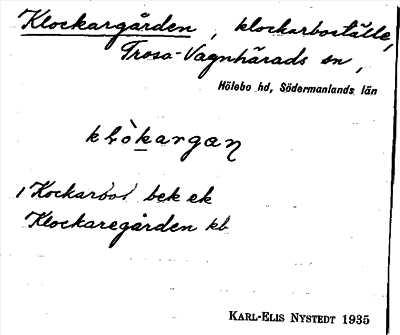 Klockargården, klockarboställe,
Trosa-Vagnhärads sn,
Hölebo hd, Södermanlands län
klòkargan
Kockarbol bek ek
Klockaregården kb
KARL-ELIS NYSTEDT 1935